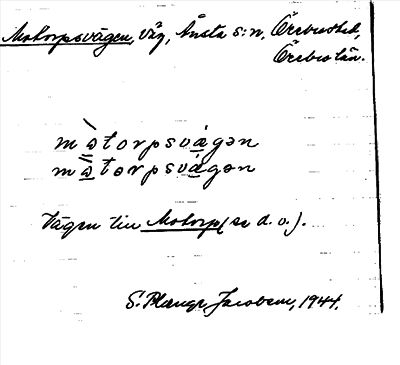 Motorpsvägen, väg, Ånsta s:n, Örebro hd,
Örebro län.
mò̀torpsvágən
mòtorpsvágən
Vägen till Motorp (se d. o.).
S. Jacobsen, 1944.